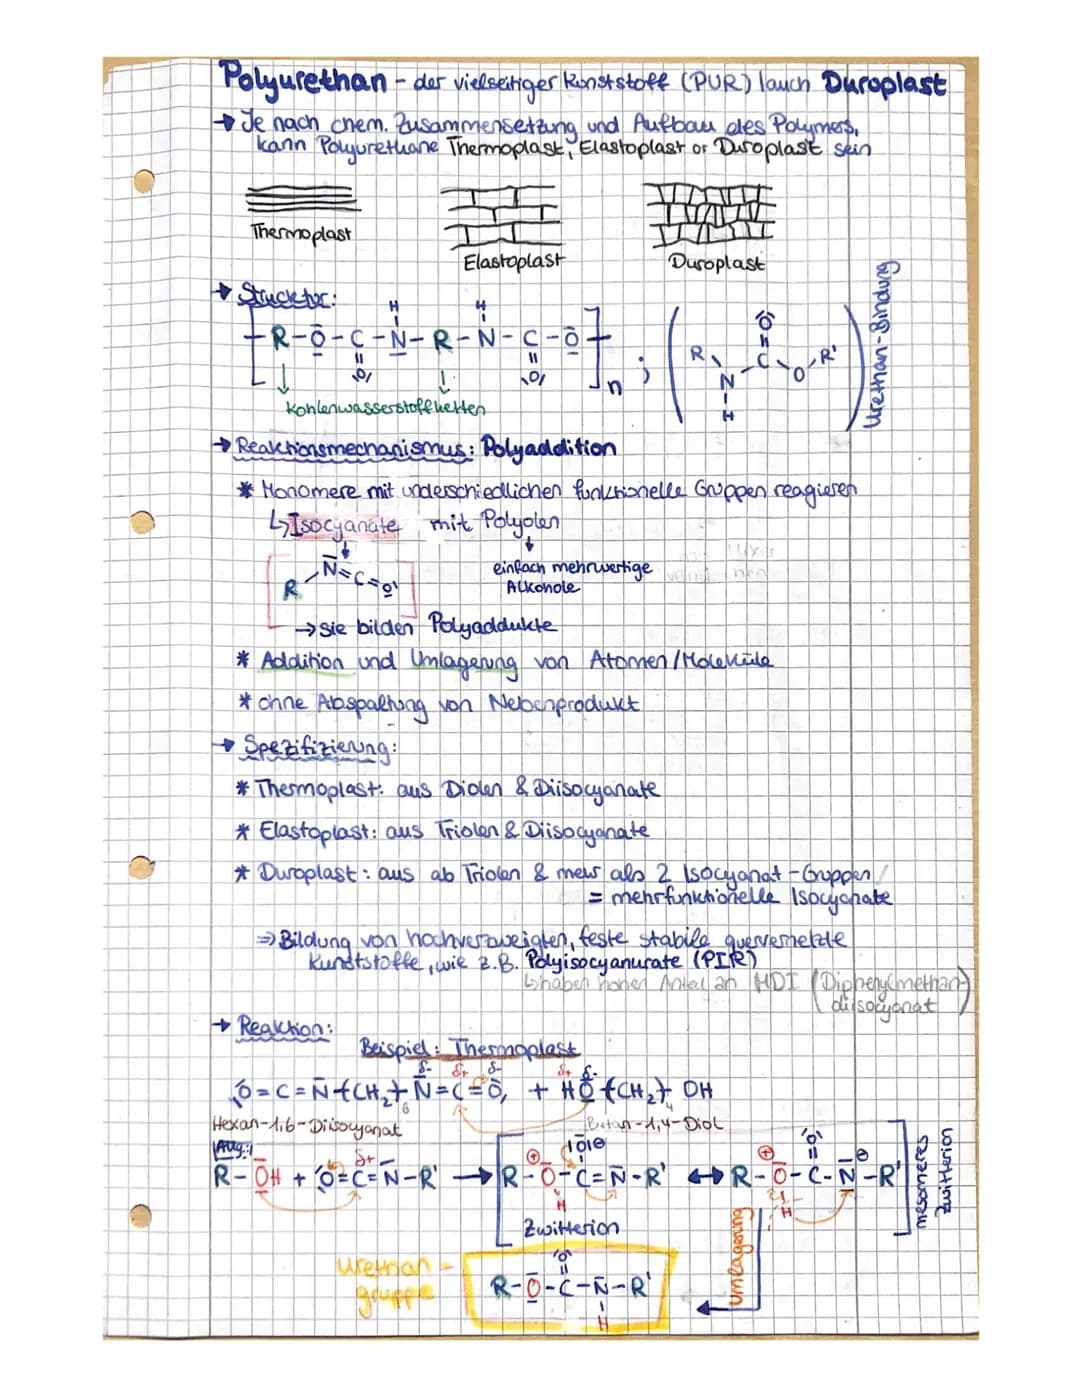 Polyurethan - der vielseitiger Kunststoff (PUR) / auch Duroplast
→ Je nach chem. Zusammensetzung und Aufbau des Polymers,
kann Polyurethane Thermoplast, Elastoplast or Duroplast sein
Thermoplast
Elastoplast
Duroplast
→ Strucktur:
[R-O-C-N-R-N-C-O]n ; (R N-H C=O O R')
H H
O O
Kohlenwasserstoffketten
Urethan-Bindung
→ Reaktionsmechanismus: Polyaddition
* Monomere mit underschiedlichen funktionelle Gruppen reagieren
↳ Isocyanate mit Polyolen
R-N=C=O
einfach mehrwertige
Alkohole
→ sie bilden Polyaddukte
* Addition und Umlagerung von Atomen/Moleküle
* ohne Abspaltung von Nebenprodukt
→ Spezifizierung:
* Thermoplast: aus Diolen & Diisocyanate
* Elastoplast: aus Triolen & Diisocyanate
* Duroplast: aus ab Triolen & mehr als 2 Isocyanat-Gruppen/
= mehrfunktionelle Isocyanate
⇒ Bildung von hochverzweigten, feste stabile quervernetzte
Kunststoffe, wie z.B. Polyisocyanurate (PIR)
↳ haben hohen Anteil an MDI (Diphenylmethan-
diisocyanat)
→ Reaktion:
Beispiel: Thermoplast
δ- δ+ δ- δ+ δ-
O=C=N-(CH2)6-N=C=O + HO-(CH2)4-OH
Hexan-1,6-Diisocyanat
Butan-1,4-Diol
Allg.:
R-OH + O=C=N-R' → [R-O-C=N-R' ↔ R-O-C-N-R']
δ+ ⊕ |O|⊖ H ⊕ O ⊖ H
mesomeres
Zwitterion
Zwitterion
Umlagerung
urethan-
gruppe
O
R-O-C-N-R'
H